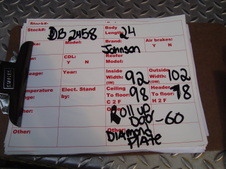 Stock#: DB 2458 Body Length: 24
Model: Brand: Johnson Air brakes:
Y N
CDL: Reefer
Y N Model:
Year: Inside Width: 92 Outside Width: 102
Temperature Elect. Stand by: Ceiling To floor: 98 Header To floor: 78
Y N H 2 F H 2 F
Other: Roll up
Door-60
Other: Diamond
Plate